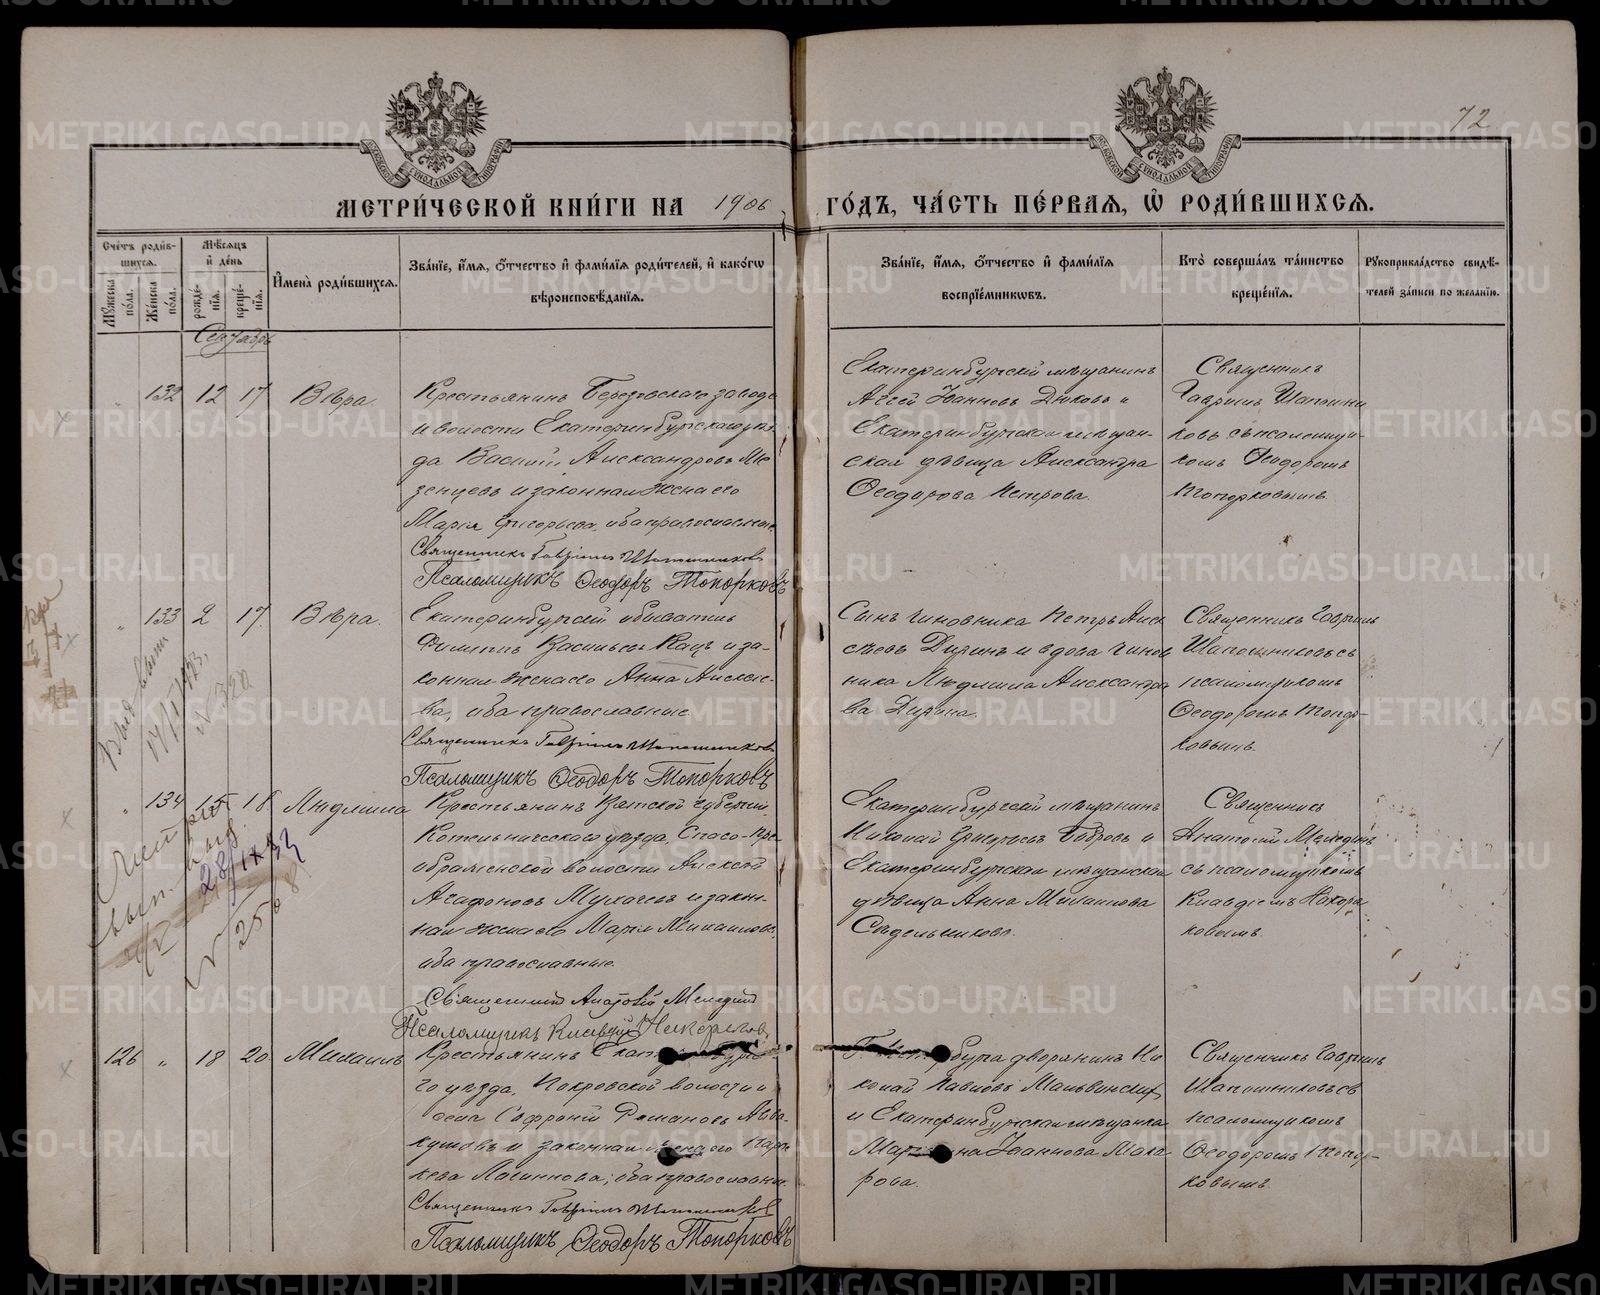 72
МЕТРИ́ЧЕСКОЙ КНИ́ГИ НА 1906 ГО́ДЪ, ЧА́СТЬ ПЕ́РВАЯ, Ѡ҆ РОДИ́ВШИХСЯ.
Счетъ роди́в-
шихся.
Мꙋжеска по́ла.
Же́нска по́ла.
Мѣсяцъ
и҆ де́нь
рожде́-
нїѧ.
креще́-
нїѧ.
И҆мена̀ роди́вшихсѧ.
Зва́нїе, и҆́мѧ, ѻ҆́тчество и҆ фами́лїѧ роди́телей, и҆ како́гѡ
вѣроисповѣ́данїѧ.
Зва́нїе, и҆́мѧ, ѻ҆́тчество и҆ фами́лїѧ
воспрїе́мникѡвъ.
Кто̀ соверша́лъ та́инство
креще́нїѧ.
Рꙋкоприкла́дство свидѣ́-
телей за́писи по жела́нїю.
Сентябрь
132 12 17 Вѣра.
Крестьянинъ Березовскаго завода
и волости Екатеринбургскаго уѣз-
да Василій Александровъ Ме
зенцевъ и законная жена его
Марія Григорьева, оба православные.
Священникъ Гавріилъ Шапошниковъ
Псаломщикъ Ѳеодоръ Топорковъ
Екатеринбургскій мѣщанинъ
Іоанновъ Дюковъ и
Екатеринбургская мѣщан-
ская дѣвица Александра
Ѳеодорова Петрова.
Священникъ
Гавріилъ Шапошни
ковъ съ псаломщи-
комъ Ѳеодоромъ
Топорковымъ.
" 133 2 17 Вѣра.
Екатеринбургскій обыватель
Филиппъ Васильевъ Кацъ и за-
конная жена его Анна Алексѣе-
ва, оба православные.
Священникъ Гавріилъ Шапошниковъ
Псаломщикъ Ѳеодоръ Топорковъ
Сынъ чиновника Петръ Алек
сѣевъ Дягинъ и вдова чинов
ника Людмила Александро
ва Дягина.
Священникъ Гавріилъ
Шапошниковъ съ
псаломщикомъ
Ѳеодоромъ Топор-
ковымъ.
" 134 15 18 Людмила
Крестьянинъ Вятской губерніи,
Котельническаго уѣзда, Спасо-Пре
ображенской волости Алексѣй
Агафоновъ Мухачевъ и закон-
ная жена его Марія Михаилова,
оба православные.
Священникъ Анатолій Мелединъ
Псаломщикъ Клавдій
Екатеринбургскій мѣщанинъ
Николай Григорьевъ Бобровъ и
Екатеринбургская мѣщанская
дѣвица Анна Михаилова
Сѣдельникова.
Священникъ
Анатолій Мелединъ
съ псаломщикомъ
Клавдіемъ
126 " 18 20 Михаилъ
Крестьянинъ
го уѣзда, Покровской волости и
села Софроній Романовъ Авва-
кумовъ и законная жена его Параске
ва Логинова; оба православные.
Священникъ Гавріилъ Шапошниковъ
Псаломщикъ Ѳеодоръ Топорковъ
дворянинъ Ни
колай Павловъ Мальвинскій
и Екатеринбургская мѣщанка
Іоаннова Мака
рова.
Священникъ Гавріилъ
Шапошниковъ съ
псаломщикомъ
Ѳеодоромъ Топор-
ковымъ.
METRIKI.GASO-URAL.RU